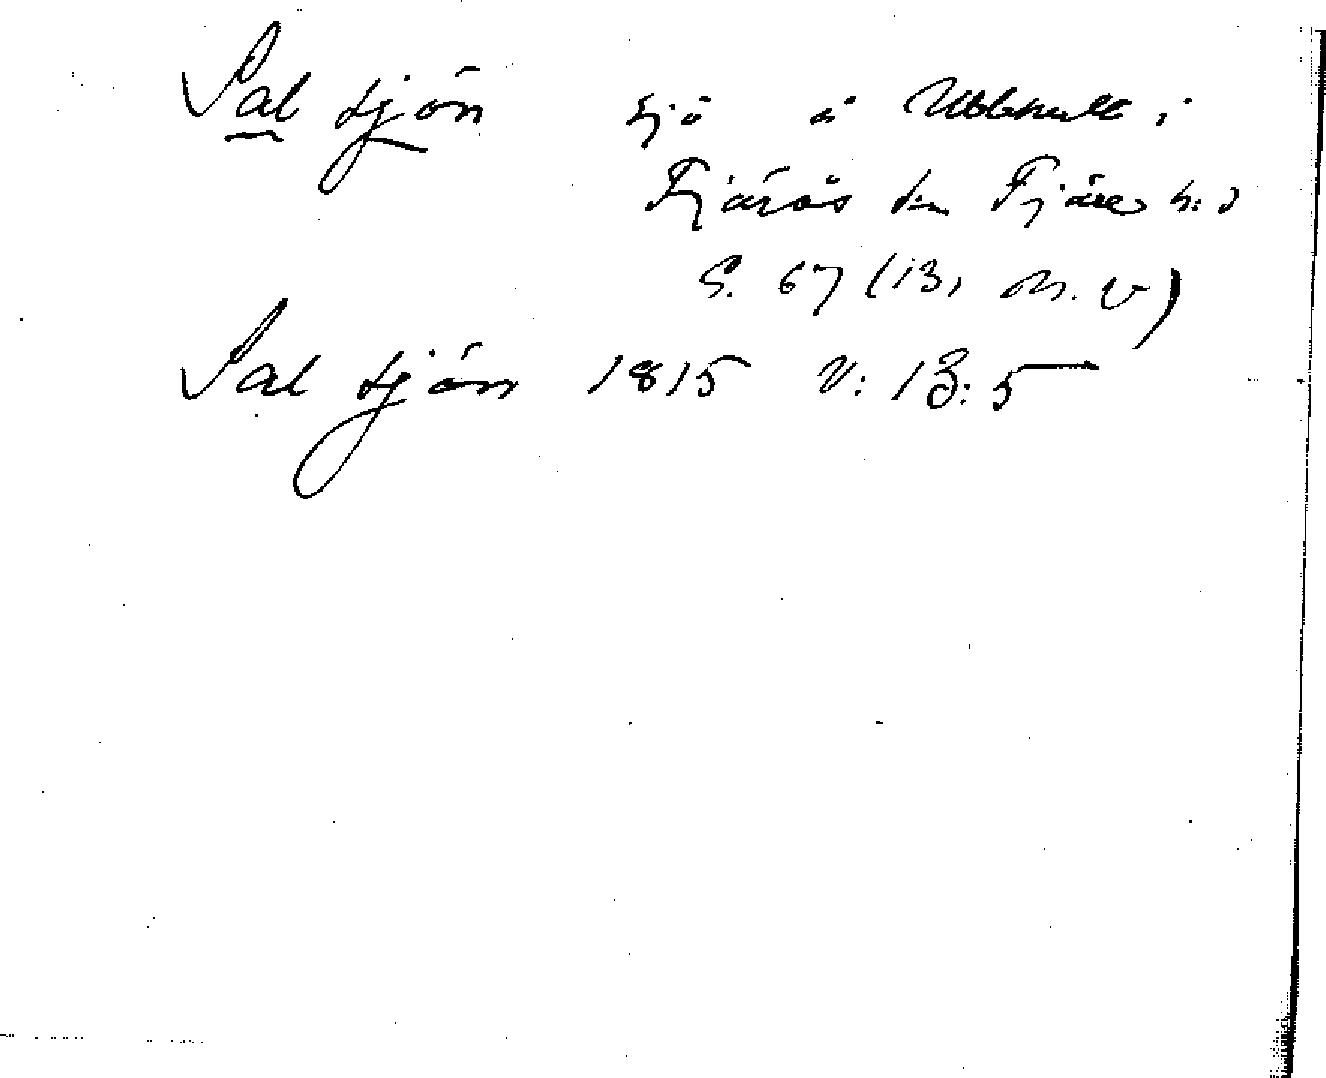 Sal sjön sjö å Ubbhult i
Fjärås sn Fjäre h:d
S. 67 (13,
Sal sjön 1815 V: 13:5